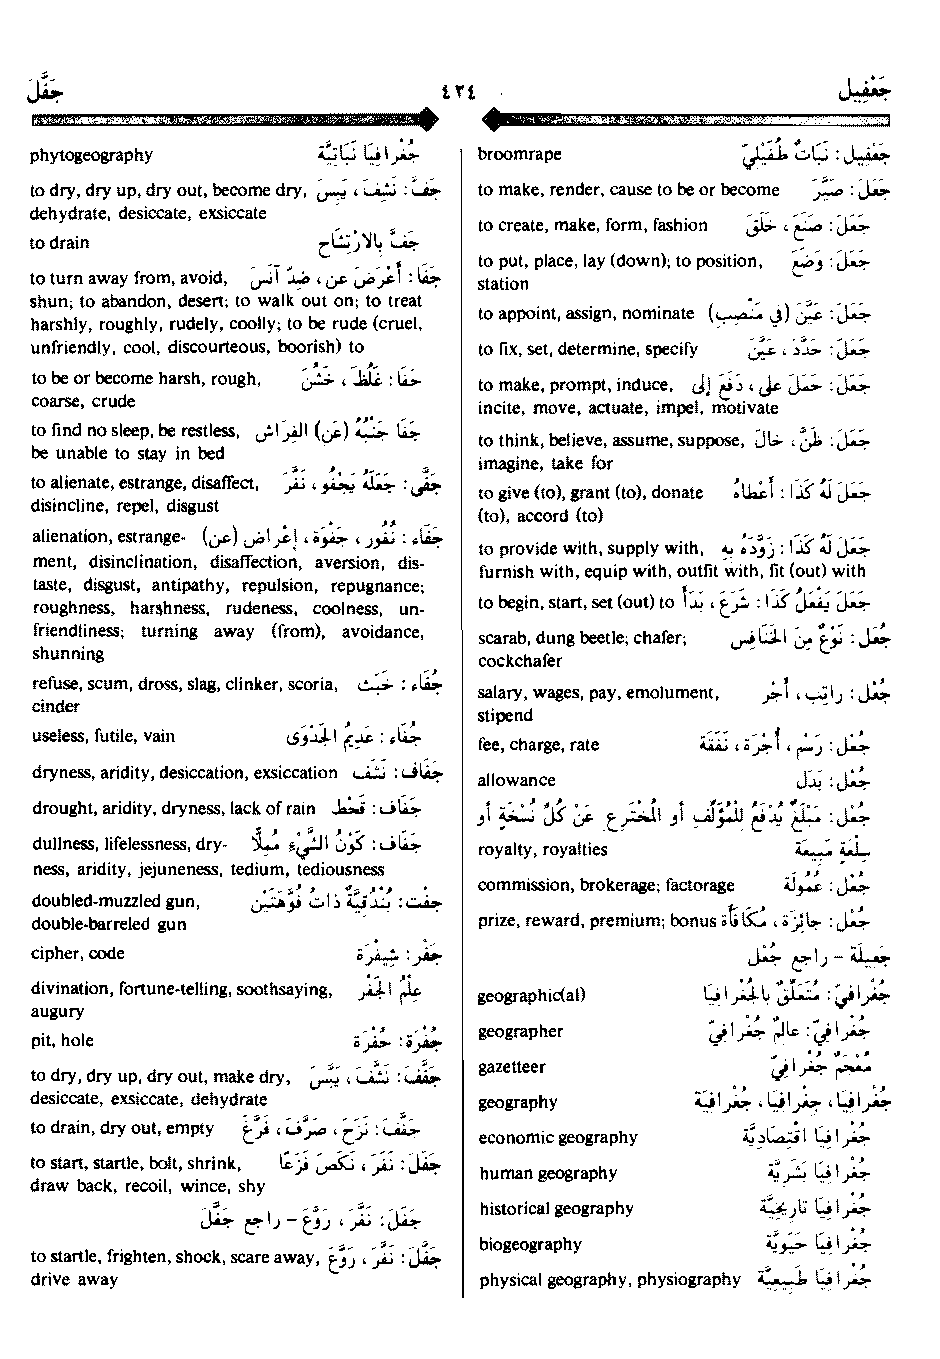 جَعْفِيل
٤٢٤
جَفَّلَ
broomrape جَعْفِيل: نَبَاتٌ طُفَيْلِيّ
to make, render, cause to be or become جَعَلَ: صَيَّرَ
to create, make, form, fashion جَعَلَ: صَنَعَ، خَلَقَ
to put, place, lay (down); to position, جَعَلَ: وَضَعَ
station
to appoint, assign, nominate جَعَلَ: عَيَّنَ (في مَنْصِب)
to fix, set, determine, specify جَعَلَ: حَدَّدَ، عَيَّنَ
to make, prompt, induce, جَعَلَ: حَمَلَ على، دَفَعَ إلى
incite, move, actuate, impel, motivate
to think, believe, assume, suppose, جَعَلَ: ظَنَّ، خَالَ
imagine, take for
to give (to), grant (to), donate جَعَلَ لَهُ كَذَا: أَعْطَاهُ
(to), accord (to)
to provide with, supply with, جَعَلَ لَهُ كَذَا: زَوَّدَهُ بِهِ
furnish with, equip with, outfit with, fit (out) with
to begin, start, set (out) to جَعَلَ يَفْعَلُ كَذَا: شَرَعَ، بَدَأَ
scarab, dung beetle; chafer; جُعَل: نَوْعٌ مِنَ الخَنَافِس
cockchafer
salary, wages, pay, emolument, جُعْل: راتِب، أَجْر
stipend
fee, charge, rate جُعْل: رَسْم، أُجْرَة، نَفَقَة
allowance جُعْل: بَدَل
جُعْل: مَبْلَغٌ يُدْفَعُ لِلْمُؤَلِّفِ أو المُخْتَرِعِ عَنْ كُلِّ نُسْخَةٍ أو
royalty, royalties سِلْعَةٍ مَبِيعَة
commission, brokerage; factorage جُعْل: عُمُولَة
prize, reward, premium; bonus جُعْل: جائِزَة، مُكَافَأَة
جَعِيلَة - راجع جُعْل
geographic(al) جُغْرافِيّ: مُتَعَلِّقٌ بالجُغْرافِيَا
geographer جُغْرافِيّ: عَالِمٌ جُغْرافِيّ
gazetteer مُعْجَمٌ جُغْرافِيّ
geography جُغْرافِيَا، جُغْرافِيَا، جُغْرافِيَة
economic geography جُغْرافِيَا اقْتِصَادِيَّة
human geography جُغْرافِيَا بَشَرِيَّة
historical geography جُغْرافِيَا تارِيخِيَّة
biogeography جُغْرافِيَا حَيَوِيَّة
physical geography, physiography جُغْرافِيَا طَبِيعِيَّة
phytogeography جُغْرافِيَا نَبَاتِيَّة
to dry, dry up, dry out, become dry, جَفَّ: نَشِفَ، يَبِسَ
dehydrate, desiccate, exsiccate
to drain جَفَّ بِالارْتِشَاح
to turn away from, avoid, جَفَا: أَعْرَضَ عن، ضِدّ آنَسَ
shun; to abandon, desert; to walk out on; to treat
harshly, roughly, rudely, coolly; to be rude (cruel,
unfriendly, cool, discourteous, boorish) to
to be or become harsh, rough, جَفَا: غَلُظَ، خَشُنَ
coarse, crude
to find no sleep, be restless, جَفَا جَنْبُهُ (عَنِ) الفِرَاش
be unable to stay in bed
to alienate, estrange, disaffect, جَفَّى: جَعَلَهُ يَجْفُو، نَفَّرَ
disincline, repel, disgust
alienation, estrange- جَفَاء: نُفُور، جَفْوَة، إعْرَاض (عن)
ment, disinclination, disaffection, aversion, dis-
taste, disgust, antipathy, repulsion, repugnance;
roughness, harshness, rudeness, coolness, un-
friendliness; turning away (from), avoidance,
shunning
refuse, scum, dross, slag, clinker, scoria, جُفَاء: خَبَث
cinder
useless, futile, vain جُفَاء: عَدِيمُ الجَدْوَى
dryness, aridity, desiccation, exsiccation جَفَاف: نَشَف
drought, aridity, dryness, lack of rain جَفَاف: قَحْط
dullness, lifelessness, dry- جَفَاف: كَوْنُ الشَّيْءِ مُمِلّاً
ness, aridity, jejuneness, tedium, tediousness
doubled-muzzled gun, جِفْت: بُنْدُقِيَّةٌ ذَاتُ فُوهَتَيْن
double-barreled gun
cipher, code جَفْر: شِيفْرَة
divination, fortune-telling, soothsaying, عِلْمُ الجَفْر
augury
pit, hole جُفْرَة: حُفْرَة
to dry, dry up, dry out, make dry, جَفَّفَ: نَشَّفَ، يَبَّسَ
desiccate, exsiccate, dehydrate
to drain, dry out, empty جَفَّفَ: نَزَحَ، صَرَّفَ، فَرَّغَ
to start, startle, bolt, shrink, جَفَلَ: نَفَرَ، نَكَصَ فَزَعًا
draw back, recoil, wince, shy
جَفَلَ: نَفَّرَ، رَوَّعَ - راجع جَفَّلَ
to startle, frighten, shock, scare away, جَفَّلَ: نَفَّرَ، رَوَّعَ
drive away